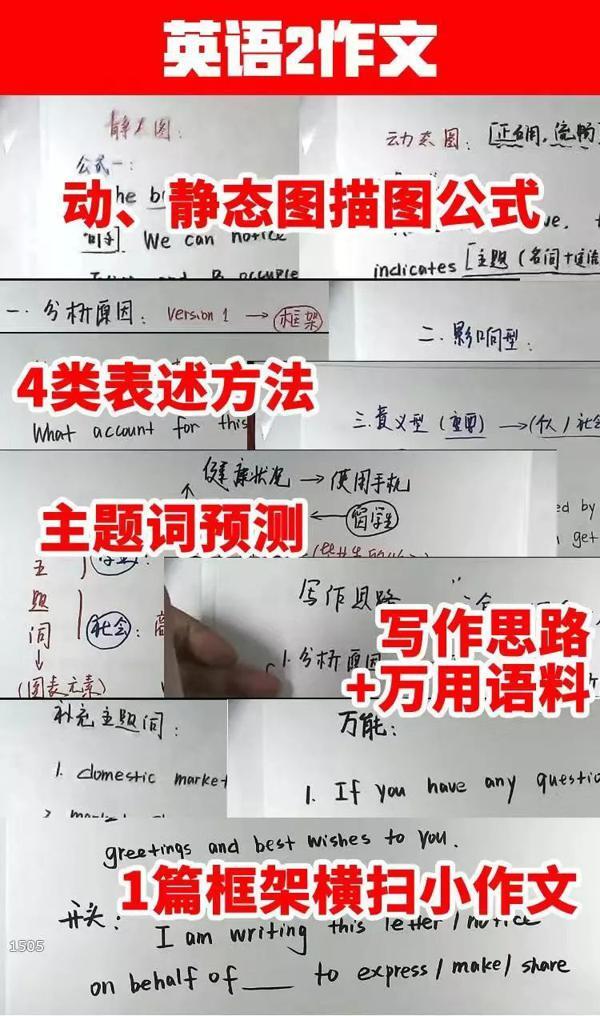 英语2作文
静态图：
动态图：[正确，流畅
公式一：
动、静态图描图公式
We can notice
indicates [主题（名词+
一、分析原因：Version 1 → 框架
二、影响型：
4类表述方法
What account for this
三、意义型（重要）→（个人/社会
健康状况 → 使用手机
留学生
主题词预测
ed by
get
主题词
↓
(图表元素)
社会：
写作思路
1.分析原因
写作思路
+万用语料
补充主题词：
1. domestic market
万能：
1. If you have any questio
greetings and best wishes to you.
1篇框架横扫小作文
开头：I am writing this letter/notice
on behalf of___ to express/make/share
1505